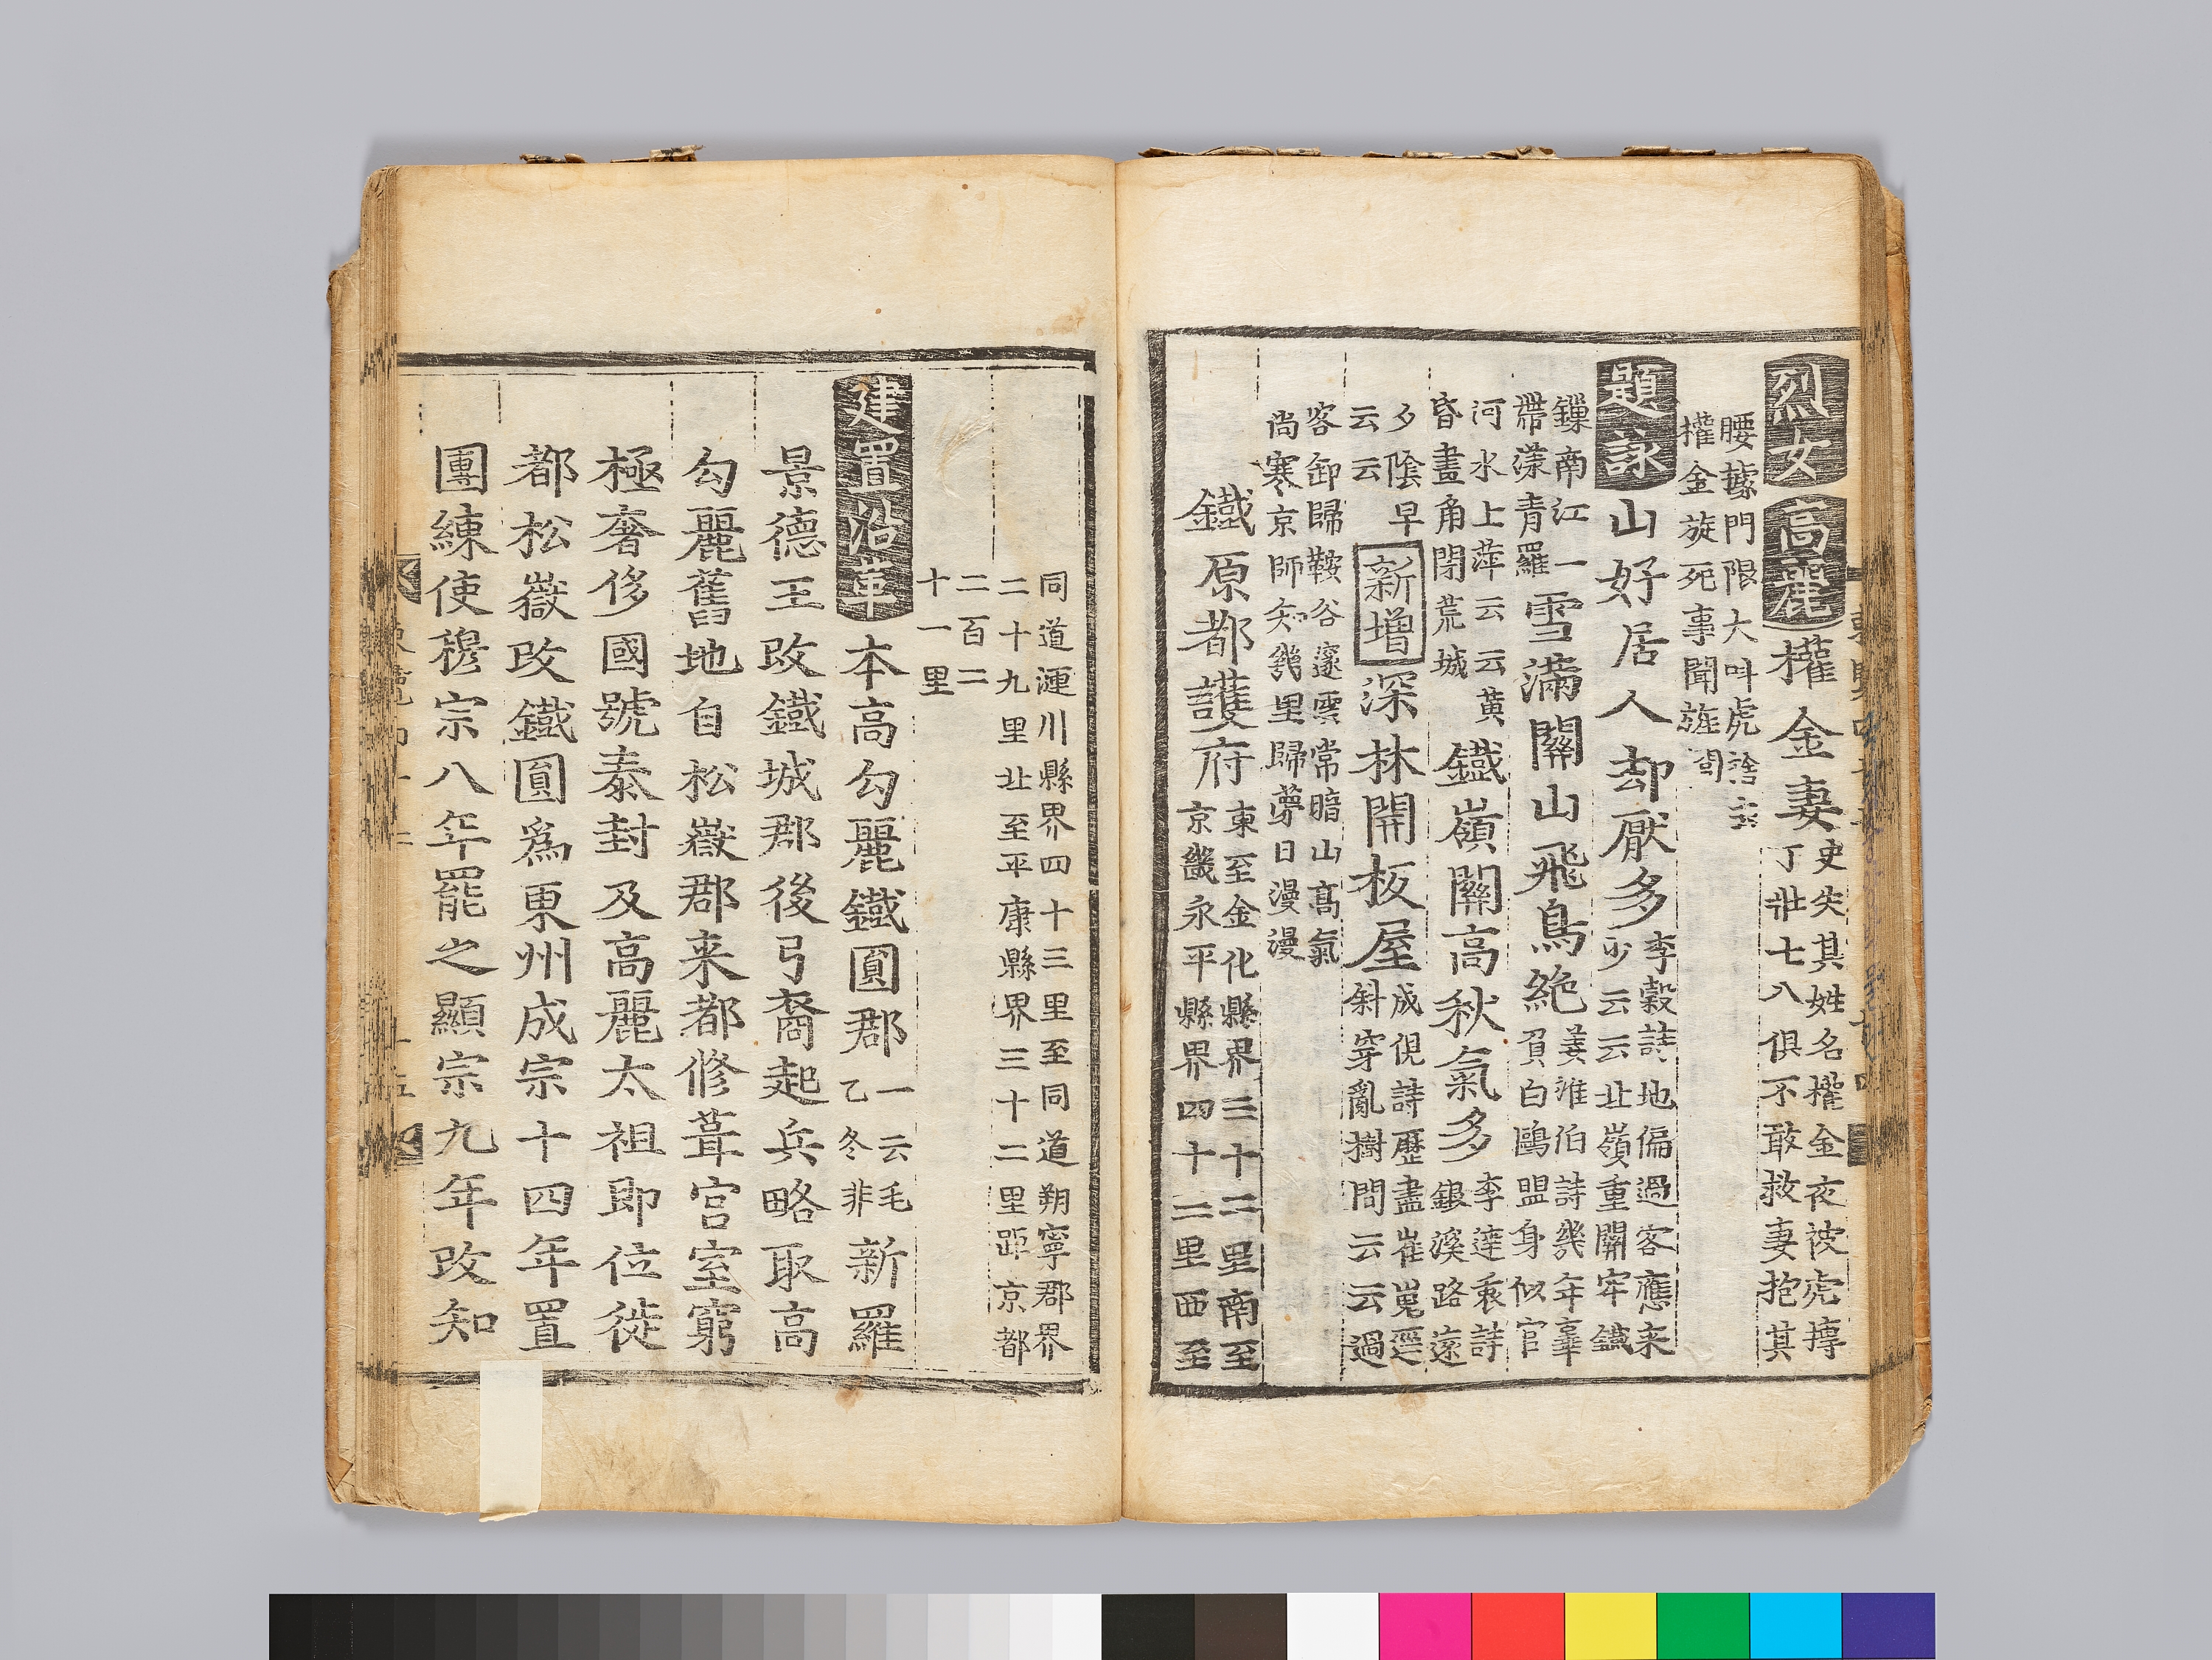 烈女 高麗 權金妻 史失其姓名權金夜被虎摶
丁壯七八俱不敢救妻抱其
腰據門限大呌虎捨去
權金旋死事聞旌閭
題詠 山好居人却厭多 李穀詩地偏過客應来
少云云北嶺重關牢鐵
鏁南江一
帶漾青羅
雪滿關山飛鳥絶 姜淮伯詩幾年辜
負白鷗盟身似官
河水上萍云云黃
昏畫角閉荒城
鐵嶺關高秋氣多 李達衷詩
銀溪路遠
夕陰早
云云
新增 深林開板屋 成俔詩歷盡崔嵬逕
斜穿亂樹間云云過
客卸歸鞍谷邃雲常暗山高氣
尚寒京師知幾里歸夢日漫漫
鐵原都護府 東至金化縣界三十二里南至
京畿永平縣界四十二里西至
同道漣川縣界四十三里至同道朔寧郡界
二十九里北至平康縣界三十二里距京都
二百二
十一里
建置沿革 本高勾麗鐵圓郡 一云毛
乙冬非
新羅
景德王改鐵城郡後弓裔起兵略取高
勾麗舊地自松嶽郡来都修葺宮室窮
極奢侈國號泰封及高麗太祖即位徙
都松嶽改鐵圓爲東州成宗十四年置
團練使穆宗八年罷之顯宗九年改知